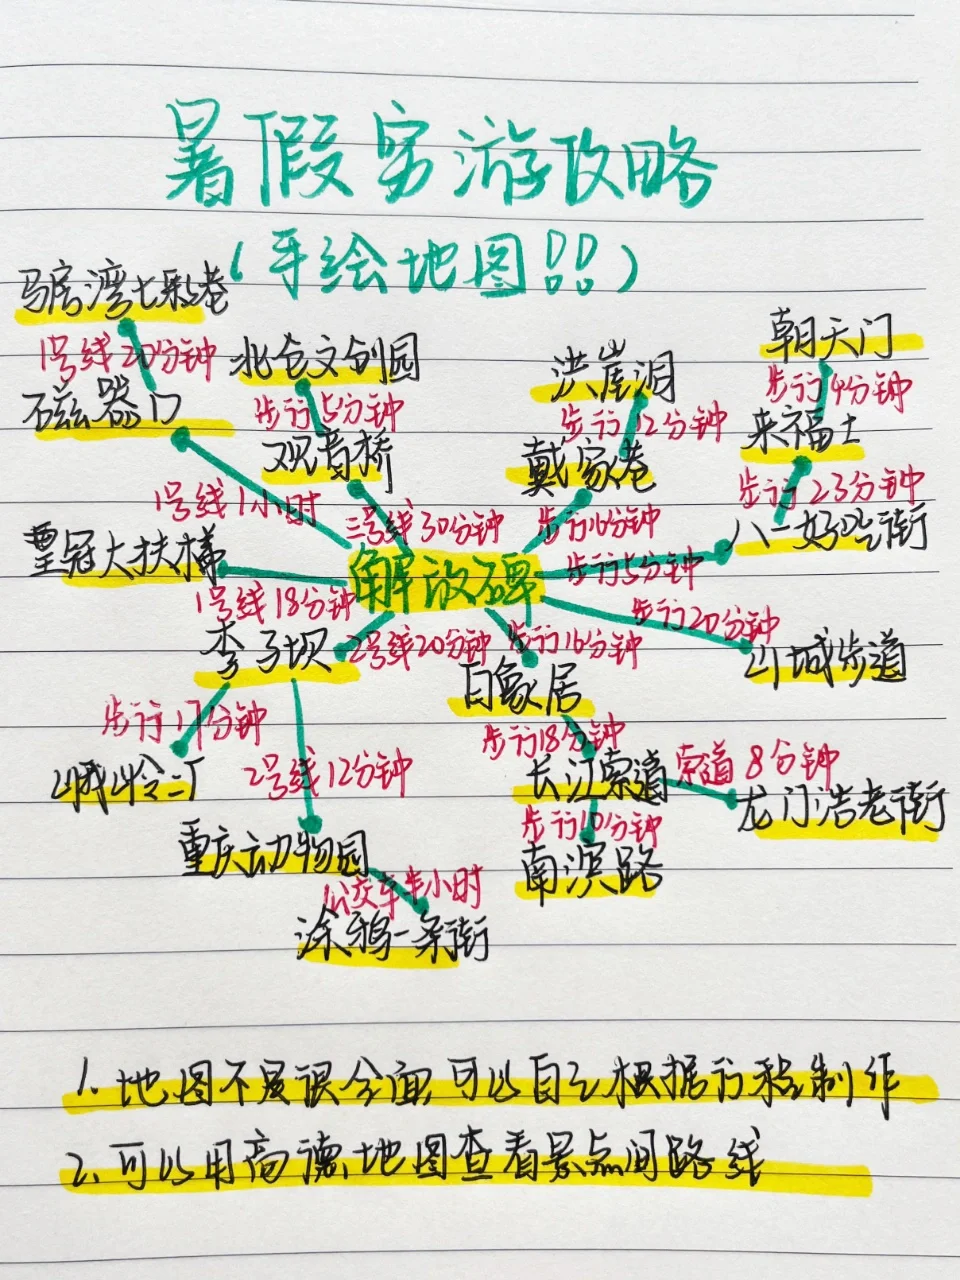 暑假穷游攻略
(手绘地图!!)
马房湾七彩巷
1号线20分钟
磁器口
1号线1小时
北仓文创园
步行5分钟
观音桥
三号线30分钟
洪崖洞
步行12分钟
戴家巷
步行16分钟
朝天门
步行4分钟
来福士
步行23分钟
八一好吃街
步行5分钟
解放碑
皇冠大扶梯
1号线18分钟
步行20分钟
山城步道
李子坝
2号线20分钟
步行16分钟
白象居
步行17分钟
鹅岭二厂
2号线12分钟
重庆动物园
公交车半小时
涂鸦一条街
步行18分钟
长江索道
索道8分钟
龙门浩老街
步行10分钟
南滨路
1.地图不是很全面,可以自己根据行程制作
2.可以用高德地图查看景点间路线